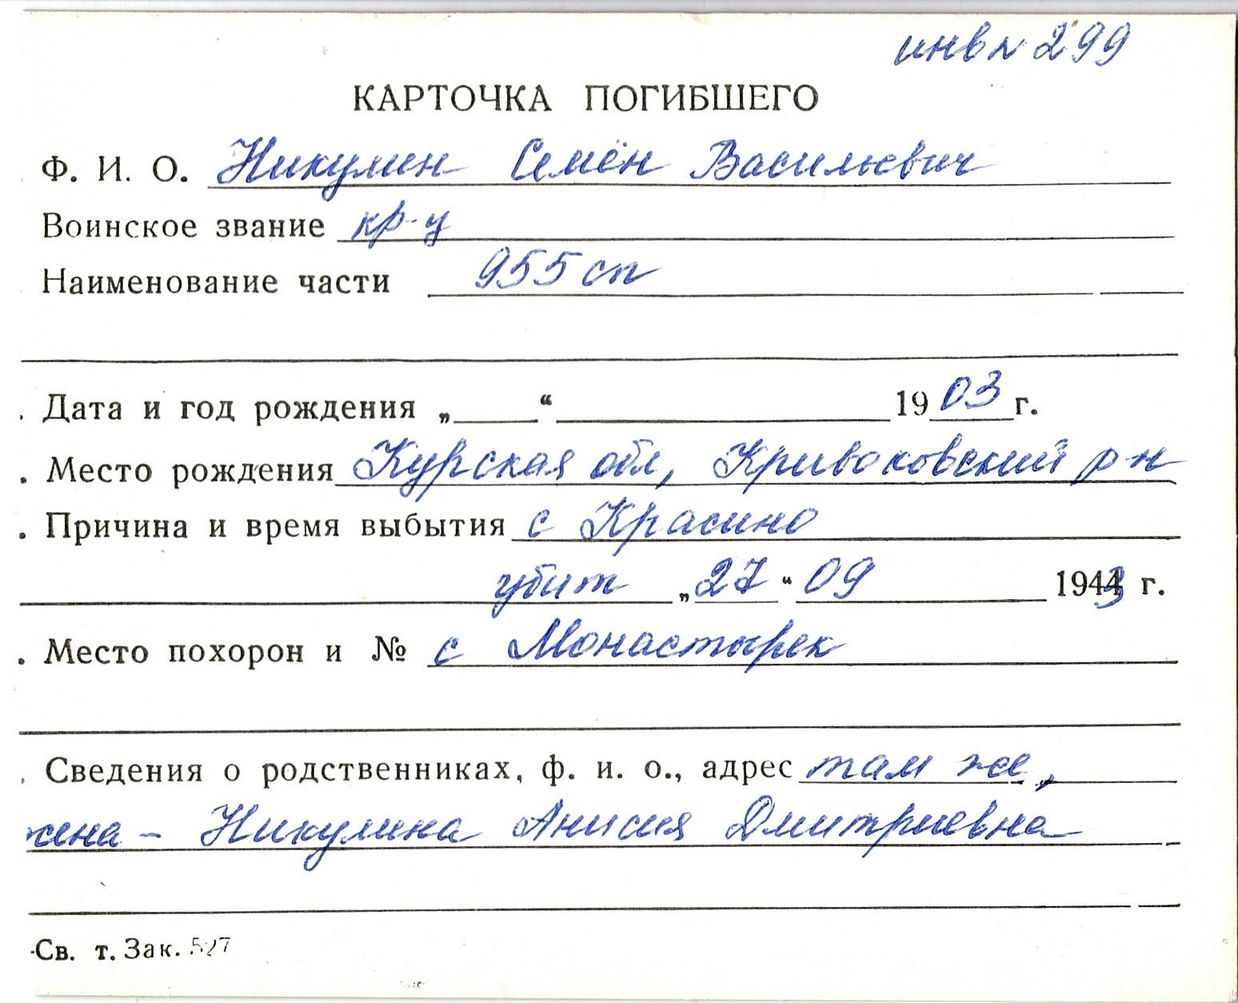 инв № 299
КАРТОЧКА ПОГИБШЕГО
Ф. И. О. Никулин Семён Васильевич
Воинское звание кр-ц
Наименование части 955 сп
Дата и год рождения „ “ 1903 г.
Место рождения Курская обл, Кривоковский р-н
Причина и время выбытия с Красино
убит „27“ 09 1943 г.
Место похорон и № с Монастырек
Сведения о родственниках, ф. и. о., адрес там же,
жена - Никулина Анисия Дмитриевна
Св. т. Зак. 527